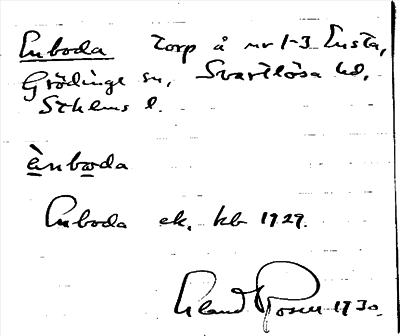 Enboda torp å nr 1-3 Ensta,
Grödinge sn, Svartlösa hd,
Sthlms l.
ènboda
Enboda ek. kb 1929.
Erland Rosell 1930